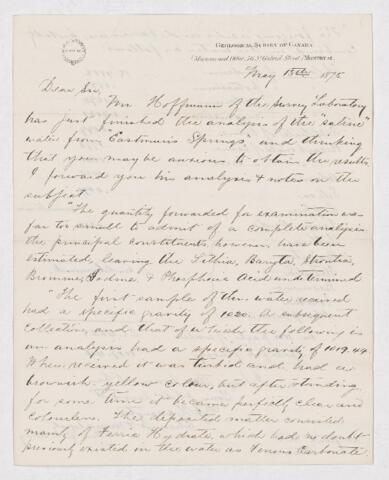 GEOLOGICAL SURVEY OF CANADA
Museum and Office, 76 St Gabriel Street, MONTREAL
May 15th 1875
Dear Sir,
Mr Hoffmann of the Survey Laboratory
has just finished the analysis of the "saline"
water from "Eastman's Springs", and thinking
that you may be anxious to obtain the results
I forward you his analysis & notes on the
subject.
"The quantity forwarded for examination was
far too small to admit of a complete analysis
the principal constituents, however, have been
estimated, leaving the Lithia, Baryta, Strontia,
Bromine, Iodine, & Phosphoric Acid undetermined.
"The first sample of this water received
had a specific gravity of 1020. A subsequent
collection, and that of which the following is
an analysis had a specific gravity of 1019.44.
When received it was turbid and had a
brownish yellow colour, but after standing
for some time it became perfectly clear and
colourless. The deposited matter consisted
mainly of Ferric Hydrate, which had no doubt
previously existed in the water as Ferrous Carbonate.